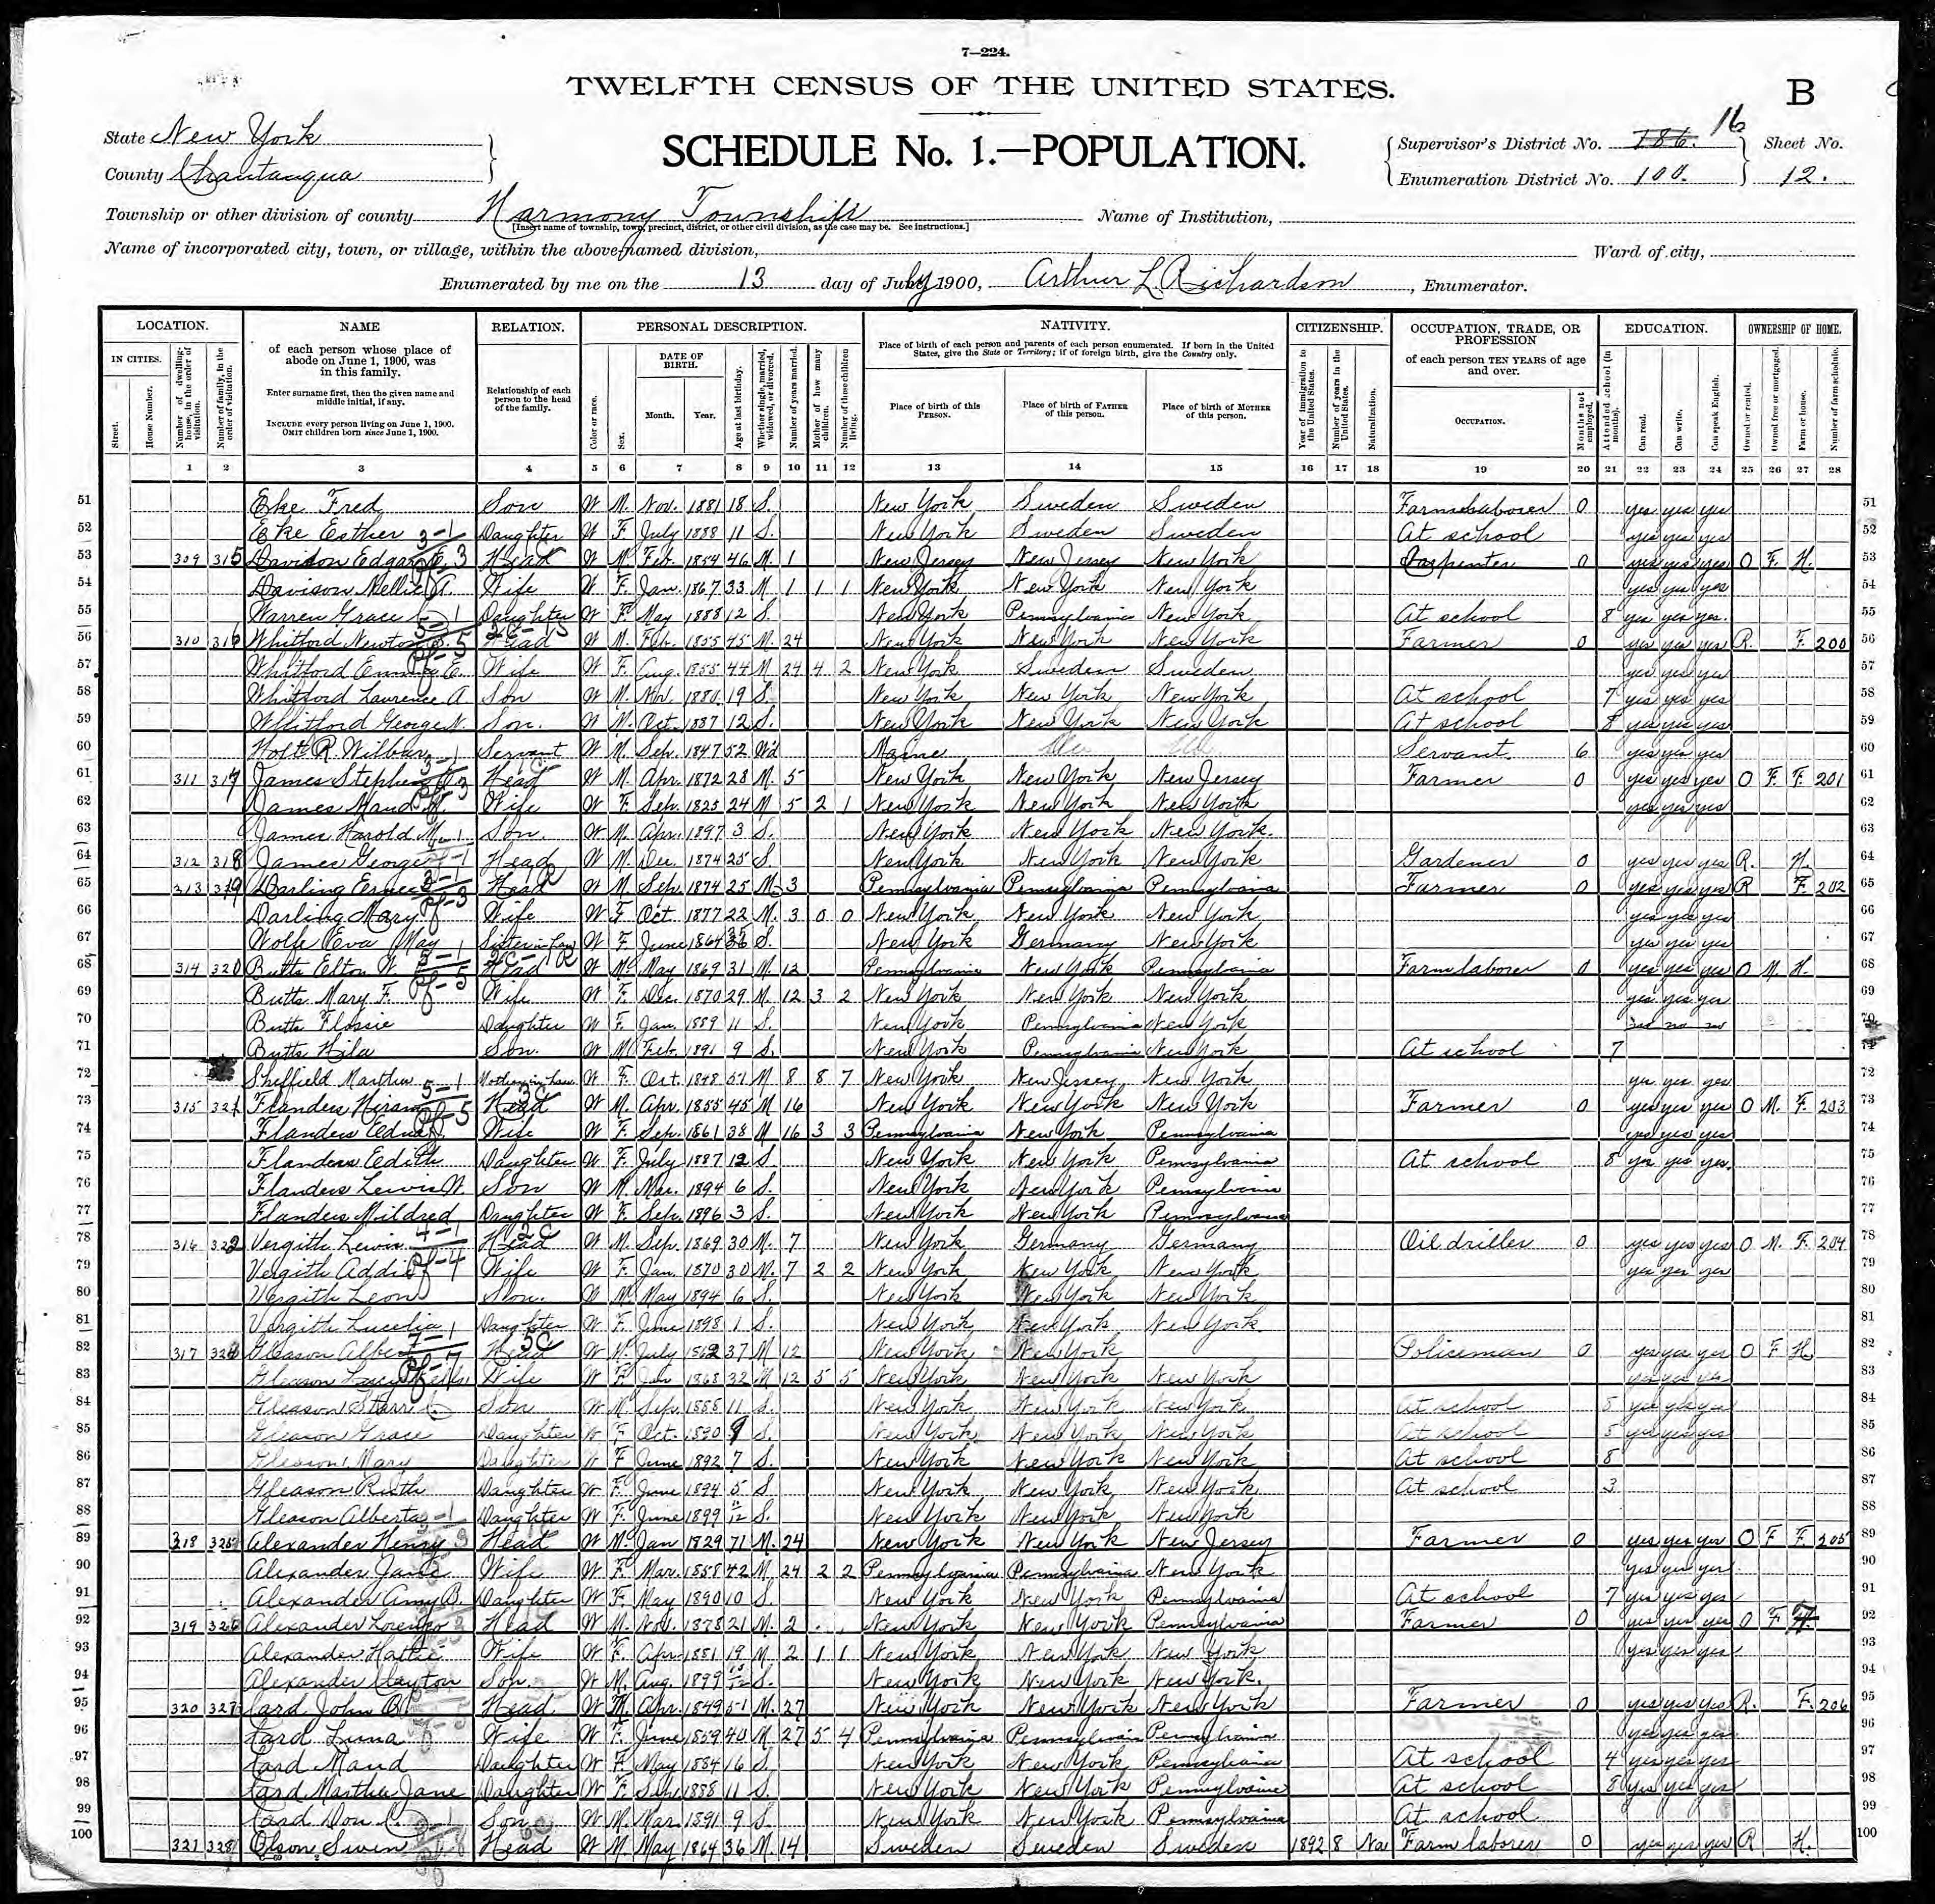 7—224.
TWELFTH CENSUS OF THE UNITED STATES.
B
State New York
SCHEDULE No. 1.—POPULATION.
Supervisor's District No. 186. 16
Sheet No.
County Chautauqua
Enumeration District No. 100.
12.
Township or other division of county Harmony Township
Name of Institution,
[Insert name of township, town, precinct, district, or other civil division, as the case may be. See instructions.]
Name of incorporated city, town, or village, within the above-named division,
Ward of city,
Enumerated by me on the 13 day of July 1900, Arthur L. Richardson, Enumerator.
LOCATION. NAME RELATION. PERSONAL DESCRIPTION. NATIVITY. CITIZENSHIP. OCCUPATION, TRADE, OR PROFESSION EDUCATION. OWNERSHIP OF HOME.
IN CITIES.
Street.
House Number.
Number of dwelling-house, in the order of visitation.
Number of family, in the order of visitation.
of each person whose place of abode on June 1, 1900, was in this family.
Enter surname first, then the given name and middle initial, if any.
INCLUDE every person living on June 1, 1900.
OMIT children born since June 1, 1900.
Relationship of each person to the head of the family.
Color or race.
Sex.
DATE OF BIRTH.
Month. Year.
Age at last birthday.
Whether single, married, widowed, or divorced.
Number of years married.
Mother of how many children.
Number of these children living.
Place of birth of each person and parents of each person enumerated. If born in the United States, give the State or Territory; if of foreign birth, give the Country only.
Place of birth of this PERSON.
Place of birth of FATHER of this person.
Place of birth of MOTHER of this person.
Year of immigration to the United States.
Number of years in the United States.
Naturalization.
of each person TEN YEARS of age and over.
OCCUPATION.
Months not employed.
Attended school (in months).
Can read.
Can write.
Can speak English.
Owned or rented.
Owned free or mortgaged.
Farm or house.
Number of farm schedule.
1 2 3 4 5 6 7 8 9 10 11 12 13 14 15 16 17 18 19 20 21 22 23 24 25 26 27 28
51 Eke Fred Son W M. Nov. 1881 18 S. New York Sweden Sweden Farm laborer 0 yes yes yes 51
52 Eke Esther Daughter W F July 1888 11 S. New York Sweden Sweden At school yes yes yes 52
53 309 315 Davison Edgar E. Head W M Feb. 1854 46 M. 1 New Jersey New Jersey New York Carpenter 0 yes yes yes O F. H. 53
54 Davison Nellie A. Wife W F. Jan. 1867 33 M 1 1 1 New York New York New York yes yes yes 54
55 Warren Grace Daughter W F May 1888 12 S. New York Pennsylvania New York At school 8 yes yes yes. 55
56 310 316 Whitford Newton Head W M. Feb. 1855 45 M. 24 New York New York New York Farmer 0 yes yes yes R. F. 200 56
57 Whitford E. Wife W F. Aug. 1855 44 M 24 4 2 New York Sweden Sweden yes yes yes 57
58 Whitford Laurence A. Son W M. Nov. 1880 19 S. New York New York New York At school 7 yes yes yes 58
59 Whitford George N. Son. W M. Oct. 1887 12 S. New York New York New York At school 8 yes yes yes 59
60 Holt R. Wilbur Servant W M. Sep. 1847 52 Wd Maine Servant. 6 yes yes yes 60
61 311 317 James Stephen Head W M. Apr. 1872 28 M. 5 New York New York New Jersey Farmer 0 yes yes yes O F. F. 201 61
62 James Maud Wife W F. Sep. 1825 24 M 5 2 1 New York New York New York yes yes yes 62
63 James Harold M. Son. W M. Apr. 1897 3 S. New York New York New York. 63
64 312 318 James George Head W M. Dec. 1874 25 S. New York New York New York Gardener 0 yes yes yes R. H. 64
65 313 319 Darling Head W M. Sep. 1874 25 M. 3 Pennsylvania Pennsylvania Pennsylvania Farmer 0 yes yes yes R F. 202 65
66 Darling Mary Wife W F Oct. 1877 22 M. 3 0 0 New York New York New York yes yes yes 66
67 Wolfe Eva May Sister in law W F. June 1864 S. New York Germany New York yes yes yes 67
68 314 320 Butts Elton Head W M May 1869 31 M. 12 Pennsylvania New York Pennsylvania Farm laborer 0 yes yes yes O M. H. 68
69 Butts Mary F. Wife W F. Dec. 1870 29 M. 12 3 2 New York New York New York yes yes yes 69
70 Butts Flossie Daughter W F. Jan. 1889 11 S. New York Pennsylvania New York 70
71 Butts Hila Son. W M Feb. 1891 9 S. New York Pennsylvania New York At school 7 71
72 Sheffield Martha Mother in law W F. Oct. 1848 51 M 8 8 7 New York New Jersey New York yes yes yes 72
73 315 321 Flanders Hiram Head W M. Apr. 1855 45 M 16 New York New York New York Farmer 0 yes yes yes O M. F. 203 73
74 Flanders Edna Wife W F. Sep. 1861 38 M 16 3 3 Pennsylvania New York Pennsylvania yes yes yes 74
75 Flanders Edith Daughter W F. July 1887 12 S. New York New York Pennsylvania At school 8 yes yes yes. 75
76 Flanders Lewis W. Son W M. Mar. 1894 6 S. New York New York Pennsylvania 76
77 Flanders Mildred Daughter W F. Sep. 1896 3 S. New York New York Pennsylvania 77
78 316 322 Vergith Lewis Head W M. Sep. 1869 30 M. 7 New York Germany Germany Oil driller 0 yes yes yes O M. F. 204 78
79 Vergith Addie Wife W F. Jan. 1870 30 M. 7 2 2 New York New York New York yes yes yes 79
80 Vergith Leon Son. W M May 1894 6 S. New York New York New York 80
81 Vergith Lucelia Daughter W F. June 1898 1 S. New York New York New York 81
82 317 Gleason Albert Head W M July 1862 37 M 12 New York New York Policeman 0 yes yes yes O F H 82
83 Gleason Wife W F Jan 1868 32 M 12 5 5 New York New York New York yes yes yes 83
84 Gleason Starr Son W M Sep. 1888 11 S. New York New York New York At school 5 yes yes yes 84
85 Gleason Grace Daughter W F Oct. 1890 9 S. New York New York New York At school 5 yes yes yes 85
86 Gleason Mary Daughter W F June 1892 7 S. New York New York New York At school 8 86
87 Gleason Ruth Daughter W F. June 1894 5 S New York New York New York At school 3 87
88 Gleason Alberta Daughter W F. June 1899 S. New York New York New York 88
89 318 325 Alexander Henry Head W M Jan 1829 71 M. 24 New York New York New Jersey Farmer 0 yes yes yes O F F. 205 89
90 Alexander Jane Wife W F. Mar. 1858 42 M. 24 2 2 Pennsylvania Pennsylvania New York yes yes yes 90
91 Alexander Amy B. Daughter W F. May 1890 10 S. New York New York Pennsylvania At school 7 yes yes yes 91
92 319 326 Alexander Lorenzo Head W M. Nov. 1878 21 M. 2 New York New York Pennsylvania Farmer 0 yes yes yes O F 92
93 Alexander Hattie Wife W F. Apr. 1881 19 M. 2 1 1 New York New York New York yes yes yes 93
94 Alexander Clayton Son. W M. Aug. 1899 S. New York New York New York. 94
95 320 327 Card John Head W M. Apr. 1849 51 M. 27 New York New York New York Farmer 0 yes yes yes R. F. 206 95
96 Card Luna Wife W F. June 1859 40 M. 27 5 4 Pennsylvania Pennsylvania Pennsylvania yes yes yes 96
97 Card Maud Daughter W F. May 1884 16 S. New York New York Pennsylvania At school 4 yes yes yes 97
98 Card Martha Jane Daughter W F. Sep. 1888 11 S. New York New York Pennsylvania At school 8 yes yes yes 98
99 Card Don C. Son W M. Mar. 1891 9 S. New York New York Pennsylvania At school 99
100 321 328 Olson Swen Head W M. May 1864 36 M. 14 Sweden Sweden Sweden 1892 8 Na Farm laborer 0 yes yes yes R H. 100